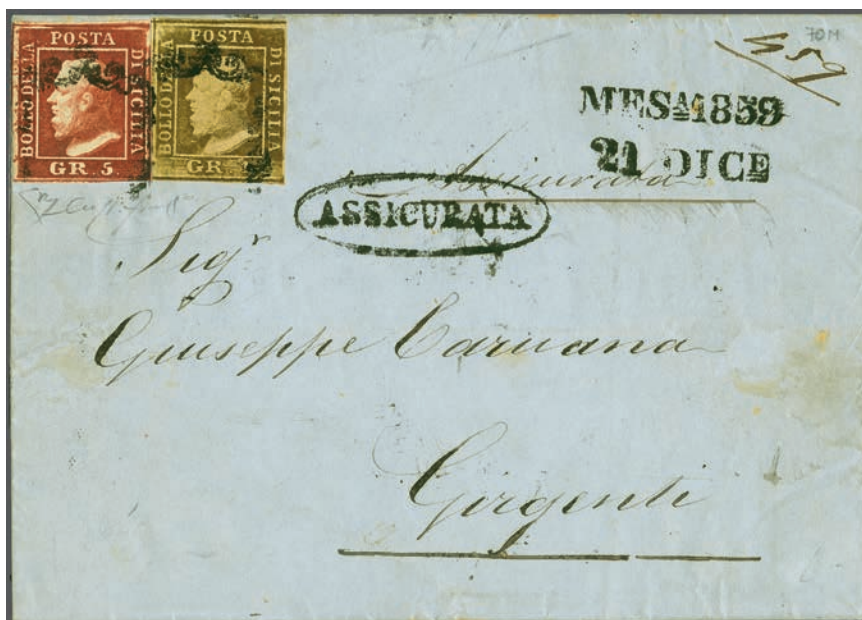 POSTA
BOLLO DELLA
DI SICILIA
GR. 5
POSTA
BOLLO DELLA
DI SICILIA
GR.
70M
459
MESA 1859
21 DICE
Assicurata
ASSICURATA
Sigr
Giuseppe Caruana
Girgenti